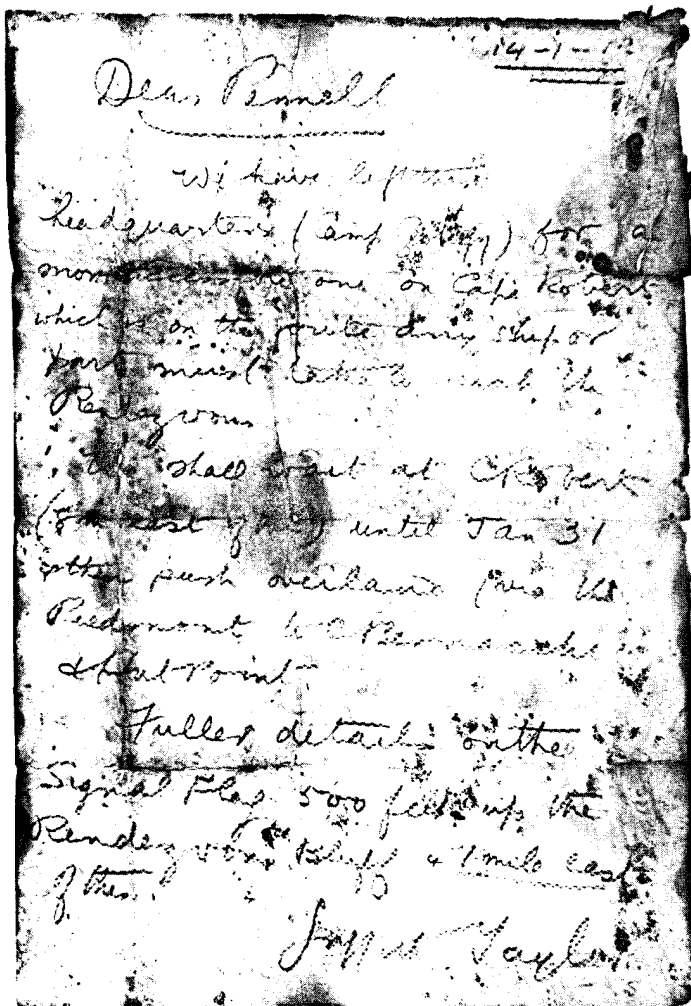 14-1-12
Dear Pennell
We have left this
headquarters (Camp Geology) for a
more accessible one on Cape Robert
which is on the route any ship or
party must take to reach the
Rendezvous
We shall wait at C Robert
until Jan 31
then push overland (via the
Piedmont to C Bernacchi
& Hut Point
Fuller details on the
Signal Flag 500 feet up the
Rendezvous Bluff & 1 mile east
of this.
Taylor